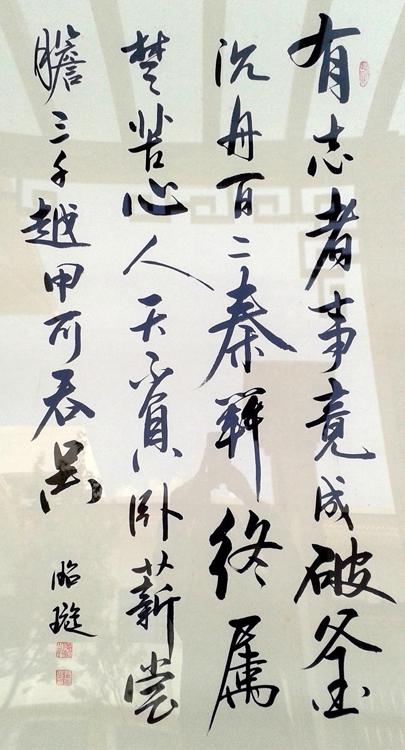 有志者事竟成破釜
沉舟百二秦關終属
楚苦心人天不負卧薪尝
膽三千越甲可吞吴
昭璇